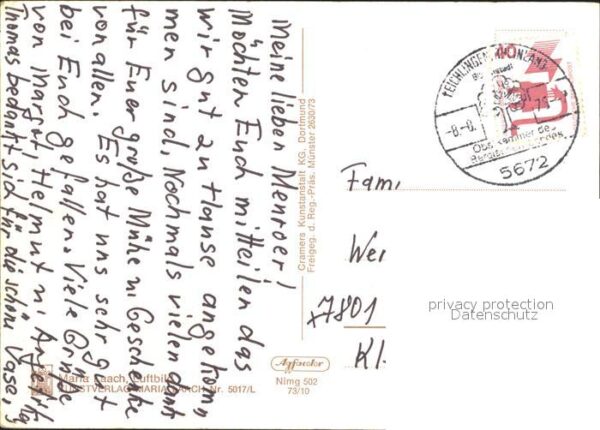 Meine lieben Menroer!
Möchten Euch mitteilen das
wir gut zu Hause angekom
men sind, Nochmals vielen dank
für Euer große Mühe u. Geschenke
von allen. Es hat uns sehr gut
bei Euch gefallen. Viele Grüße
von Margut Helmut u.
Thomas bedankt sich für die schöne Vase,
Maria Laach, Luftbild
KUNSTVERLAG MARIA LAACH Nr. 5017/L
Cramers Kunstanstalt KG, Dortmund
Freigeg. d. Reg.-Präs. Münster 2630/73
Agfacolor
Nimg 502
73/10
40
LEICHLINGEN, RHEINLAND
Blütenstadt
-8.-8.
75
Obstkammer des
Bergischen Landes
5672
Fami
Wer
7801
Kl.
privacy protection
Datenschutz